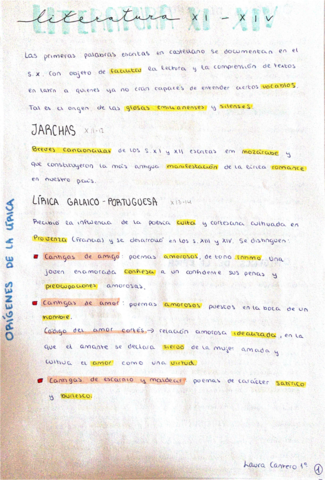 literatura XI - XIV
Las primeras palabras escritas en castellano se documentan en el
S.X con objeto de facilitar la lectura y la comprensión de textos
en latín a quienes ya no eran capaces de entender ciertos vocablos.
Tal es el origen de las glosas emilianenses y silenses.
JARCHAS XI-XII
Breves cancioncillas de los S.XI y XII escritas em mozárabe y
que constituyeron la más antigua manifestación de la lírica romance
en nuestro país.
LÍRICA GALAICO-PORTUGUESA XIII-XIV
Recibió la influencia de la poesía culta y cortesana cultivada en
Provenza (Francia) y se desarrolló en los S.XIII y XIV. Se distinguen:
Cantigas de amigo: poemas amorosos, de tono íntimo. Una
joven enamorada confiesa a un confidente sus penas y
preocupaciones amorosas.
Cantigas de amor: poemas amorosos puestos en la boca de un
hombre.
Código del amor cortés → relación amorosa idealizada, en la
que el amante se declara siervo de la mujer amada y
cultiva el amor como una virtud.
Cantigas de escarnio y maldecir: poemas de carácter satírico
y burlesco.
ORÍGENES DE LA LÍRICA
Laura Carrero 1º
1